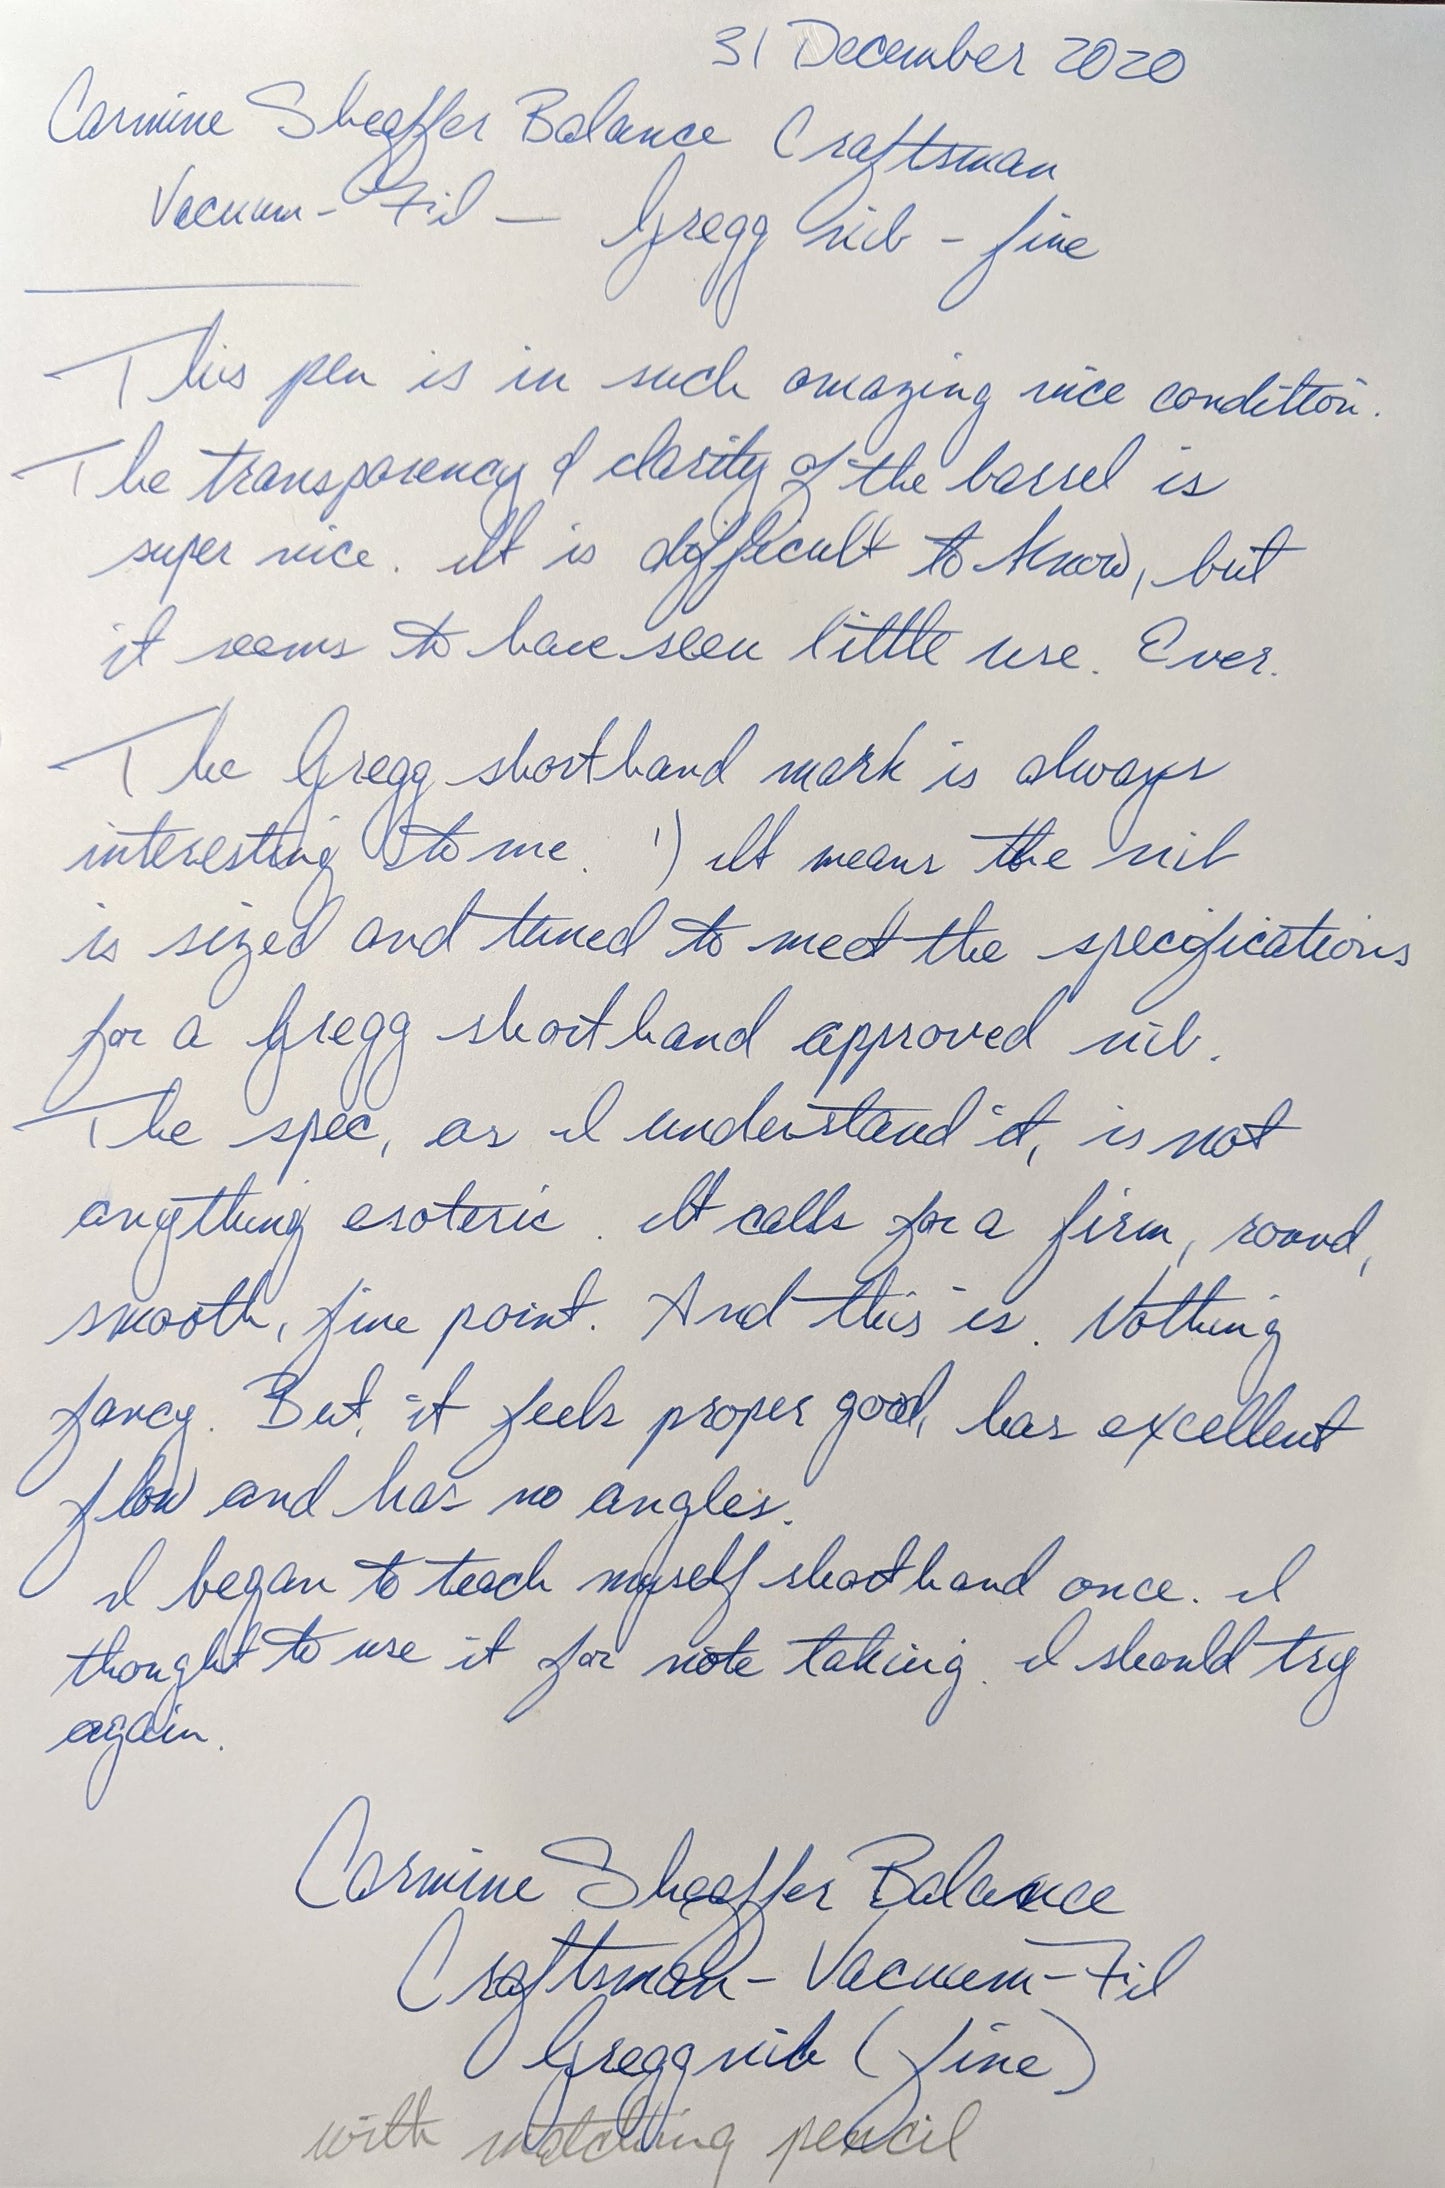 31 December 2020
Carmine Sheaffer Balance Craftsman
Vacuum-Fil — Gregg nib - fine
This pen is in such amazing nice condition.
The transparency & clarity of the barrel is
super nice. It is difficult to know, but
it seems to have seen little use. Ever.
The Gregg shorthand mark is always
interesting to me. ') It means the nib
is sized and tuned to meet the specifications
for a Gregg shorthand approved nib.
The spec, as I understand it, is not
anything esoteric. It calls for a firm, round,
smooth, fine point. And this is. Nothing
fancy. But, it feels proper good, has excellent
flow and has no angles.
I began to teach myself shorthand once. I
thought to use it for note taking. I should try
again.
Carmine Sheaffer Balance
Craftsman - Vacuum-Fil
Gregg nib (fine)
with matching pencil